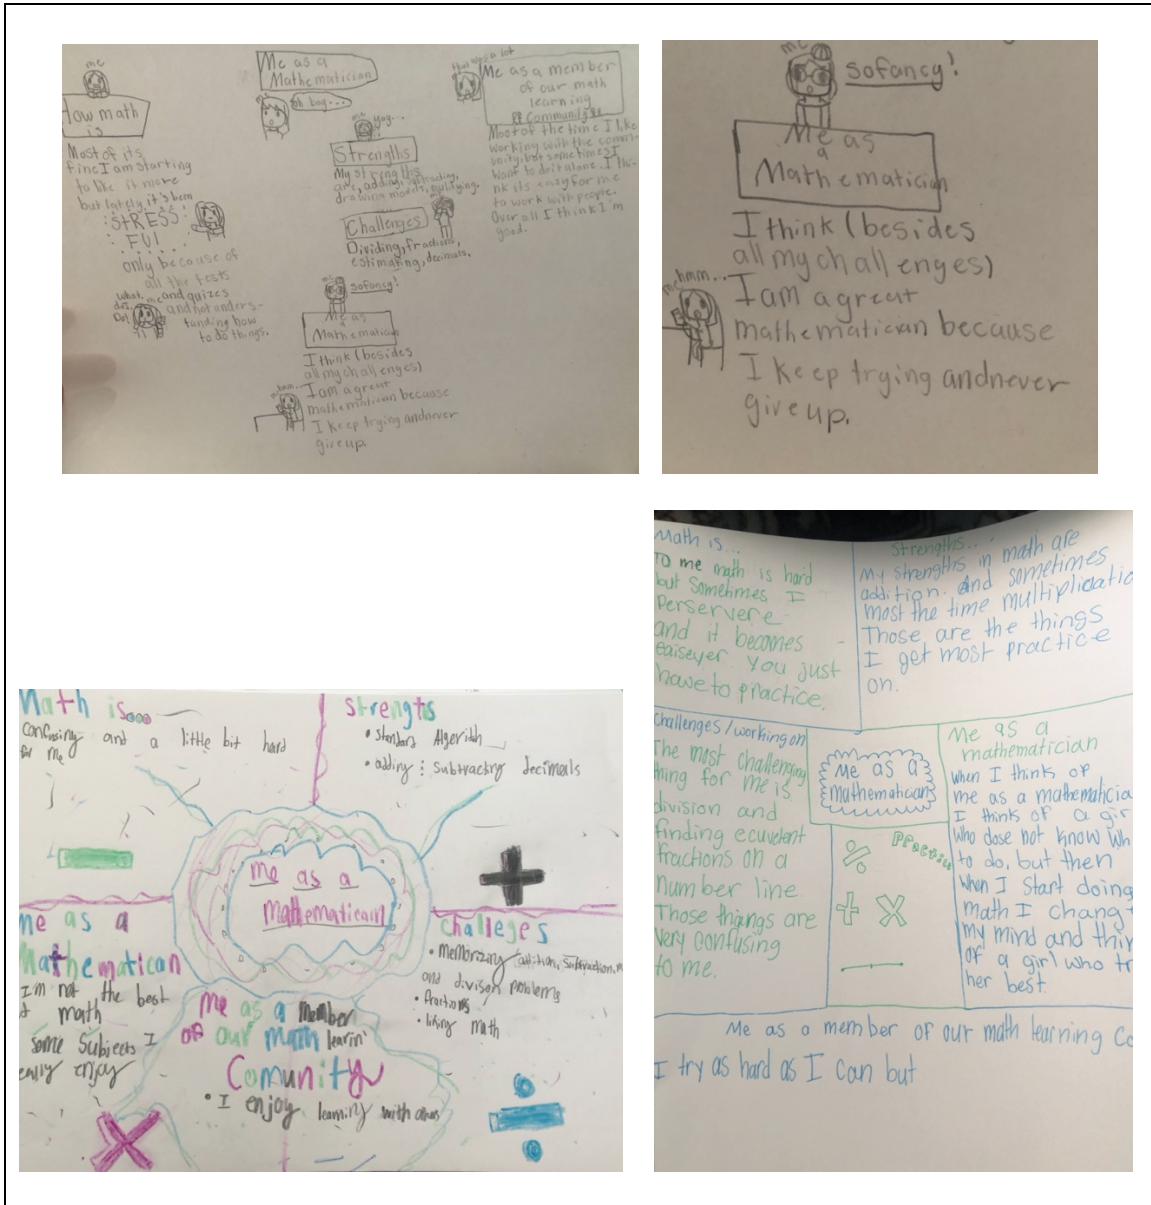 me
How math
is
Most of its
fine I am starting
to like it more
but lately, it's been
STRESS
FUL
only because of
all the tests
and quizes
and not unders-
tanding how
to do things.
what
do I
Do!
me
Me as a
Mathematician
oh boy...
me
yay...
Strengths
My strengths
are, adding, subtracting,
drawing models, multiplying.
Challenges
Dividing, fractions,
estimating, decimals.
me
sofancy!
Me as
a
Mathematician
I think (besides
all my challenges)
I am a great
mathematician because
I keep trying andnever
give up.
me hmm...
that was a lot
Me as a member
of our math
learning
Community
Most of the time I like
working with the comm-
unity, but sometimes I
want to do it alone. I thi-
nk its easy for me
to work with people.
Over all I think I'm
good.
me
sofancy!
Me as
a
Mathematician
I think (besides
all my challenges)
I am a great
mathematician because
I keep trying andnever
give up.
me hmm...
Math is...
confusing and a little bit hard
for me
Strengths
• standard Algorith
• adding : Subtracting decimals
me as a
mathematicain
me as a
Mathematican
I'm not the best
at math
some subjects I
really enjoy
Challeges
• memorizing addition, subtraction, m
and divison problems
• fractions
• liking math
me as a member
of our math learin'
Comunity
• I enjoy learning with others
Math is...
To me math is hard
but sometimes I
perservere
and it becomes
eaiseyer. You just
have to practice.
Strengths...
My strengths in math are
addition. And sometimes
most the time multiplicatio
Those are the things
I get most practice
on.
Challenges/working on
The most challenging
thing for me is
division and
finding ecuvelent
fractions on a
number line
Those things are
very confusing
to me.
Me as a
mathematician
÷
+ ×
−
Practice
Me as a
mathematician
When I think of
me as a mathematicia
I think of a girl
who dose not know wh
to do, but then
when I start doing
math I chang
my mind and thin
of a girl who tr
her best.
Me as a member of our math learning Co
I try as hard as I can but